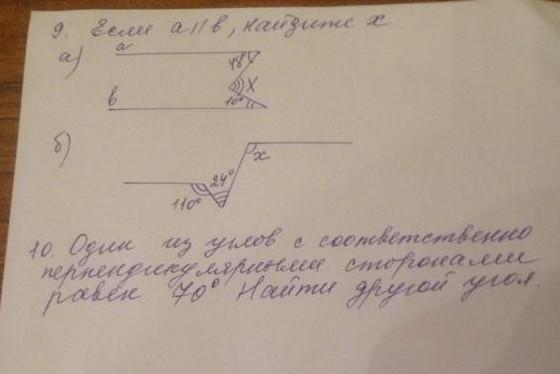 9. Если a || в, найдите x
а) a
48°
x
в 10°
б)
x
24°
110°
10. Один из углов с соответственно
перпендикулярными сторонами
равен 70° Найти другой угол.